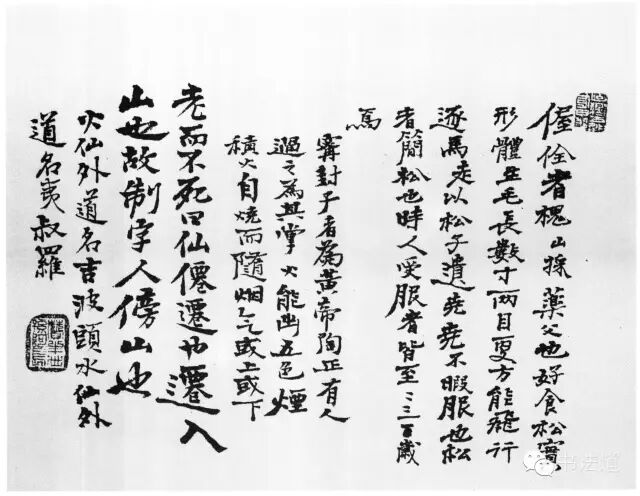 偓佺者槐山採藥父也好食松實
形體生毛長數寸兩目更方能飛行
逐馬走以松子遺堯堯不暇服也松
者簡松也時人受服者皆至二三百歲
焉
寗封子者為黃帝陶正有人
過之為其掌火能出五色煙
積火自燒而隨烟气或上或下
老而不死曰仙僊遷也遷入
山也故制字人傍山也
火仙外道名吉波頭水仙外
道名夷叔羅
书法道